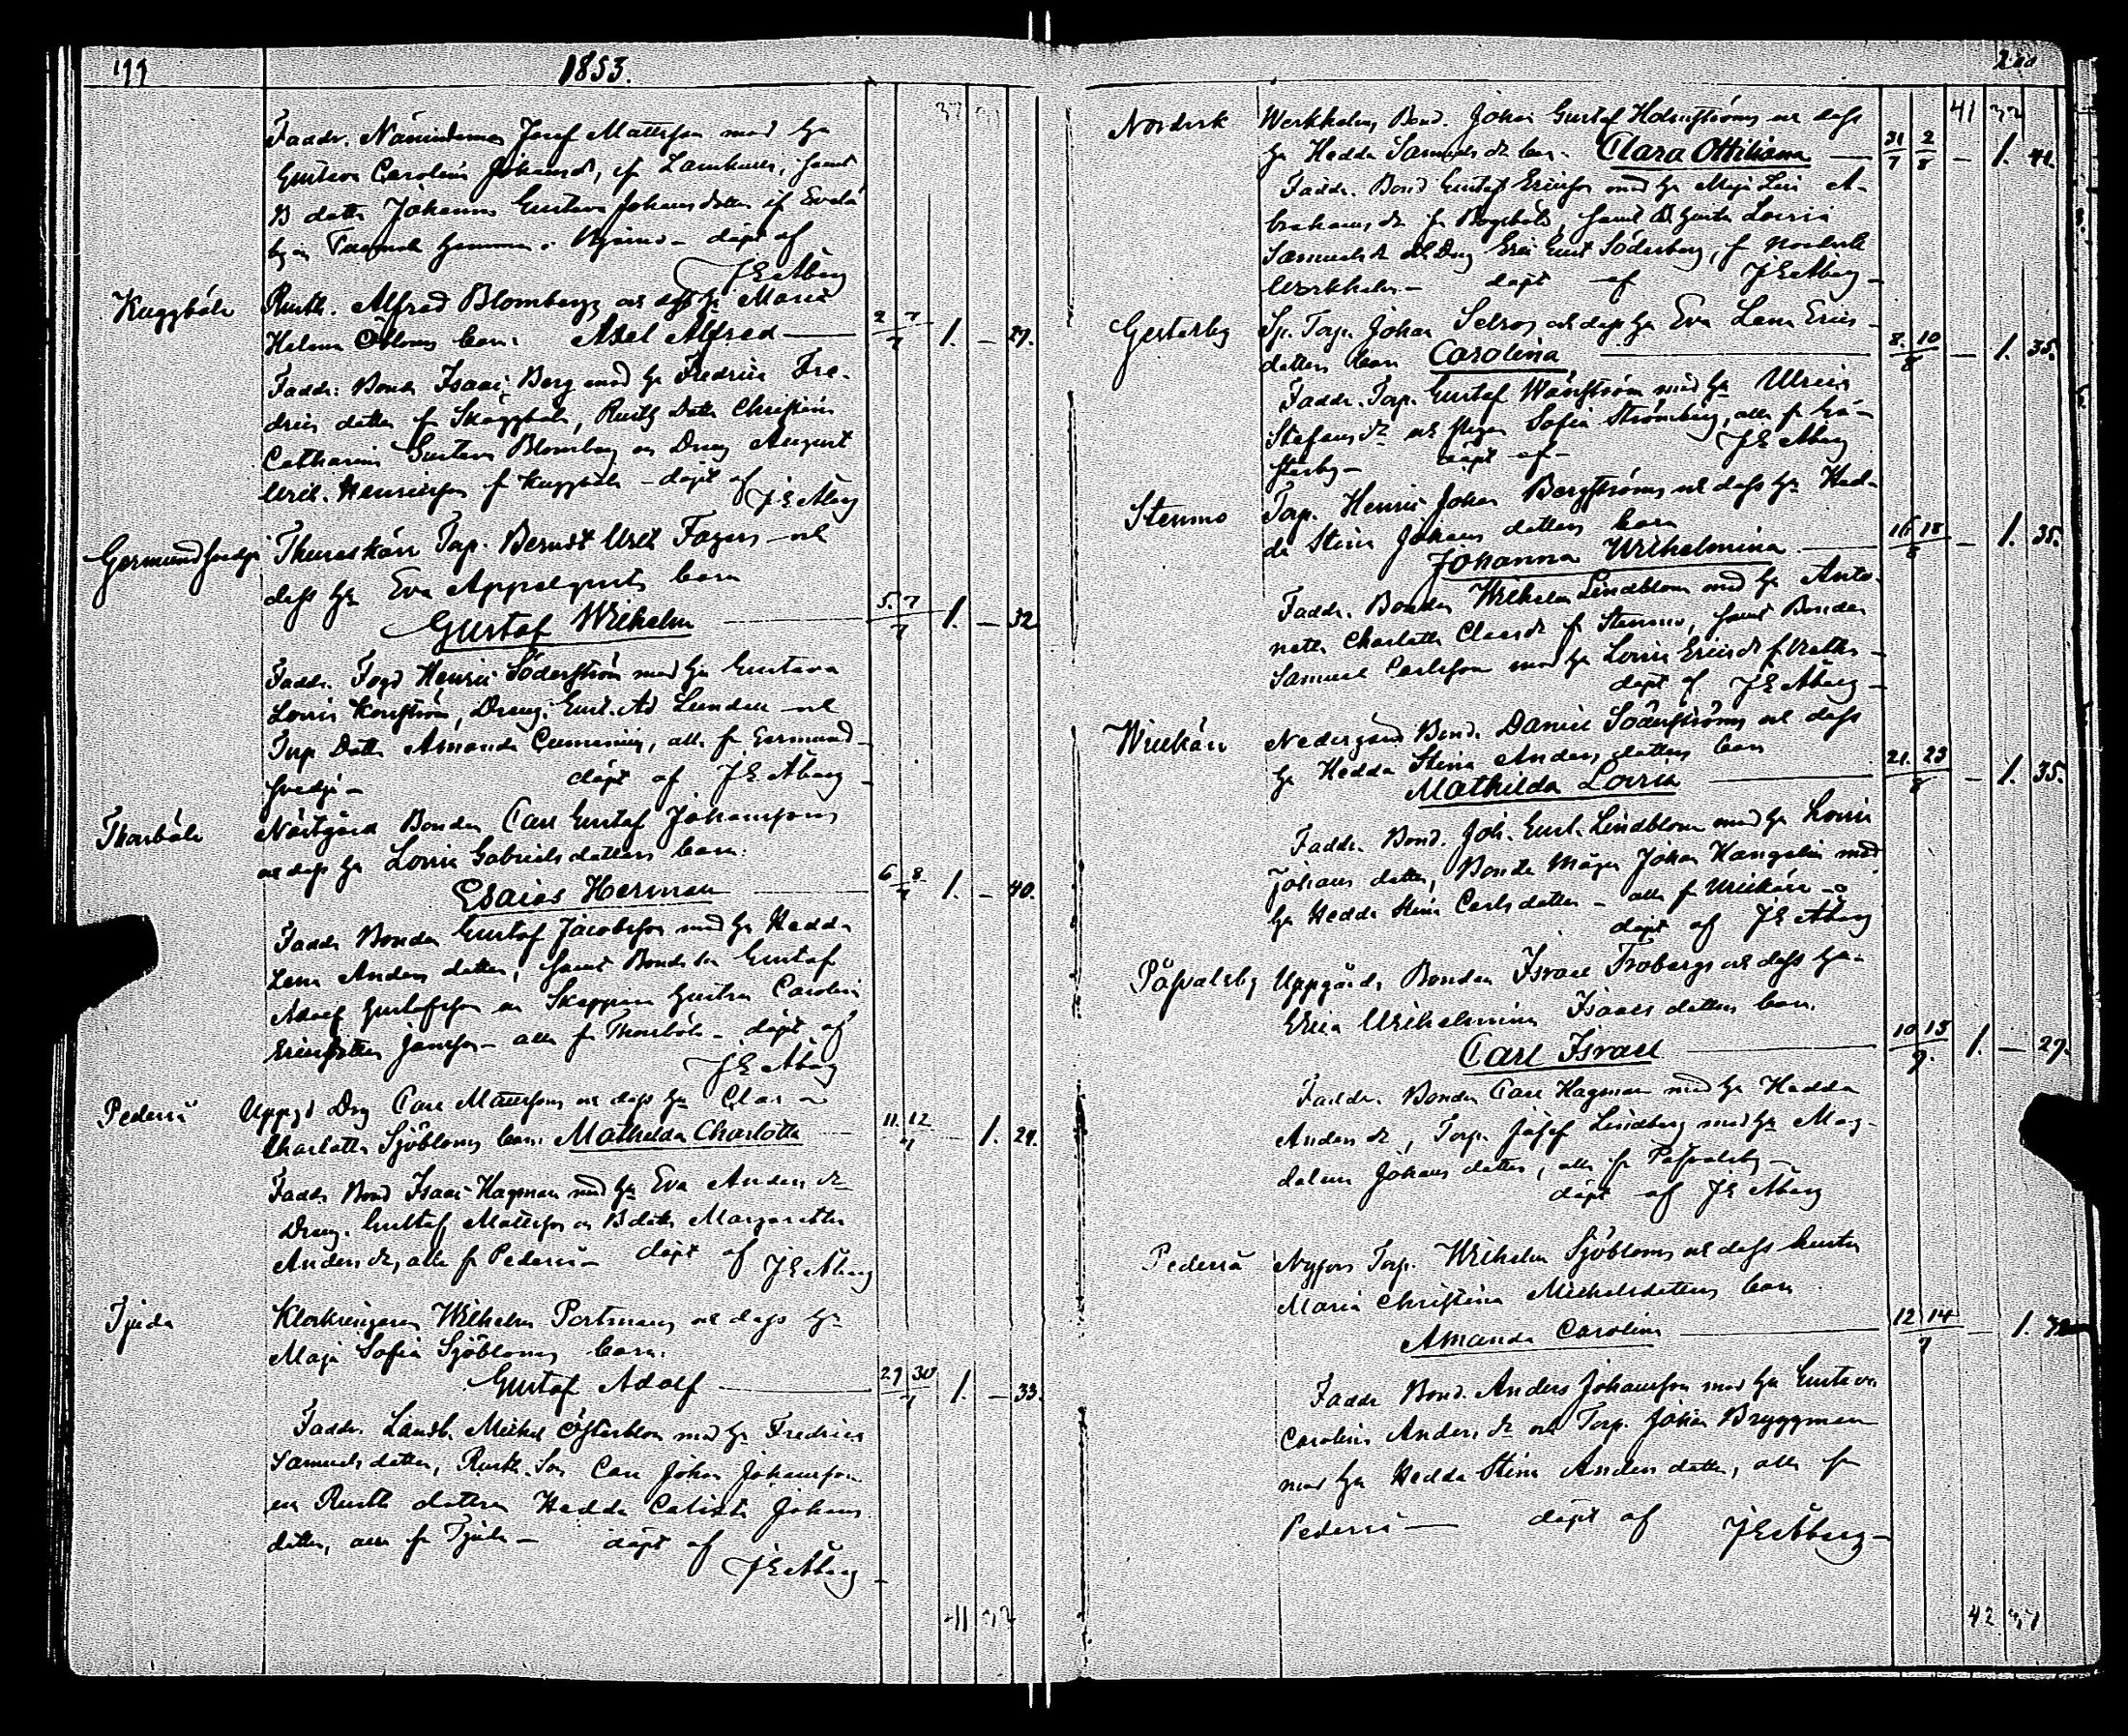 199
1853.
37
Faddr. Nämndeman Josef Mattsson med h:u
Gustava Carolina Johansd:r, fr.
B dottr Johanna Gustava Johansdotter
döpt af
J E Åberg
Kuggböle Rusth. Alfred Blombergs och dess h:u Maria
Helena Öbloms barn: Axel Alfred — 2 7/7 1. — 27.
Faddr: Bonden Isaac Berg med h:u Fredrica Fre-
drics dotter fr Skäggböle, Rusth Dottr Christina
Catharina Gustava Blomberg och Dreng August
Wilh. Henricsson fr Kuggböle — döpt af
J E Åberg
Germundsvedja Thuraskärr Torp. Berndt Wilh Fagers och
dess h:u Eva Appelqvists barn
Gustaf Wilhelm — 5. 7/7 1. — 32.
Faddr. Fogd Henric Söderström med h:u Gustava
Lovisa, Dreng. Gust. Ad Lunden och
Torp Dottr Amanda, alla fr Germund-
svedja — döpt af J E Åberg —
Thorsböle Norrgård Bonden Carl Gustaf Johanssons
och dess h:u Lovisa Gabrielsdotters barn:
Esaias Herman — 6 8/7 1. — 40.
Faddr Bonden Gustaf Jacobsson med h:u Hedda
Lena Andersdotter, samt Bonde son Gustaf
Adolf Gustafsson och Skepparen hustru Carolina
Ericsdotter Jansson — alla fr Thorsböle — döpt af
J E Åberg
Pederså Uppgd Drg Carl Mattssons och dess h:u Clara
Charlotta Sjöbloms barn: Mathilda Charlotta — 11. 12/7 — 1. 24.
Faddr Bond Isaac Hagman med h:u Eva Andersd:r
Dreng. Gustaf Mattsson och B dottr Margaretha
Andersd:r, alla fr Pederså — döpt af J E Åberg
Tjuda Klockringaren Wilhelm Portmans och dess h:u
Maja Sofia Sjöbloms barn.
Gustaf Adolf — 29 30/7 1. — 33.
Faddr. Landb. Michel Österblom med h:u Fredrica
Samuelsdotter, Rusth. Son Carl Johan Johansson
och Rusth dottren Hedda Calista Johans
dotter, alla fr Tjuda — döpt af
J E Åberg —
41 32
200
41 32
Nordvik Werkholms Bond. Johan Gustaf Holmströms och dess
h:u Hedda Samuelsd:r barn. Clara Ottiliana — 31/7 2/8 — 1. 41.
Faddr. Bond Gustaf Ericsson med h:u Maja Lisa A-
brahamsd:r fr Bogsböle, samt hustru Lovisa
Samuelsd:r och Drg Eric Gust Söderberg, fr Nordvik
Werkholm — döpt af J E Åberg —
Gesterby Sp. Torp. Johan Selros och dess h:u Eva Lena Erics-
dotters barn Carolina — 8. 10/8 — 1. 35.
Faddr. Torp. Gustaf Wänström med h:u Ulrica
Stefansd:r och Sofia Strömberg, alla fr Ge-
sterby — döpt af — J E Åberg
Stenmo Torp. Henric Johan Bergströms och dess h:u Hed-
da Stina Johansdotters barn
Johanna Wilhelmina — 16 18/8 — 1. 35.
Faddr. Bonden Wilhelm Lindblom med h:u Anto-
netta Charlotta Claesd:r fr Stenmo, samt Bonden
Samuel Carlsson med h:u Lovisa Ericsd:r fr
döpt af J E Åberg —
Wrekärr Nedergård Bond. Daniel Söderströms och dess
h:u Hedda Stina Andersdotters barn
Mathilda Lovisa — 21. 23/8 — 1. 35.
Faddr. Bond. Joh. Gust. Lindblom med h:u Lovisa
Johansdotter, Bonde Mågen Johan Hangelin med
h:u Hedda Stina Carlsdotter — alla fr Wrekärr —
döpt af J E Åberg
Påfvalsby Uppgårds Bonden Israel Frobergs och dess h:u
Erica Wilhelmina Isaacsdotters barn.
Carl Israel — 10 15/9. 1. — 27.
Faddr. Bonden Carl Hagman med h:u Hedda
Andersd:r, Torp. Josef Lindberg med h:u Mag-
dalena Johansdotter, alla fr Påfvalsby —
döpt af J E Åberg
Pederså Nyfors Torp. Wilhelm Sjöbloms och dess hustru
Maria Christina Michelsdotters barn
Amanda Carolina — 12 14/9 — 1.
Faddr Bond. Anders Johansson med h:u Gustava
Carolina Andersd:r och Torp. Johan Bryggman
med h:u Hedda Stina Andersdotter, alla fr
Pederså — döpt af J E Åberg —
42 37